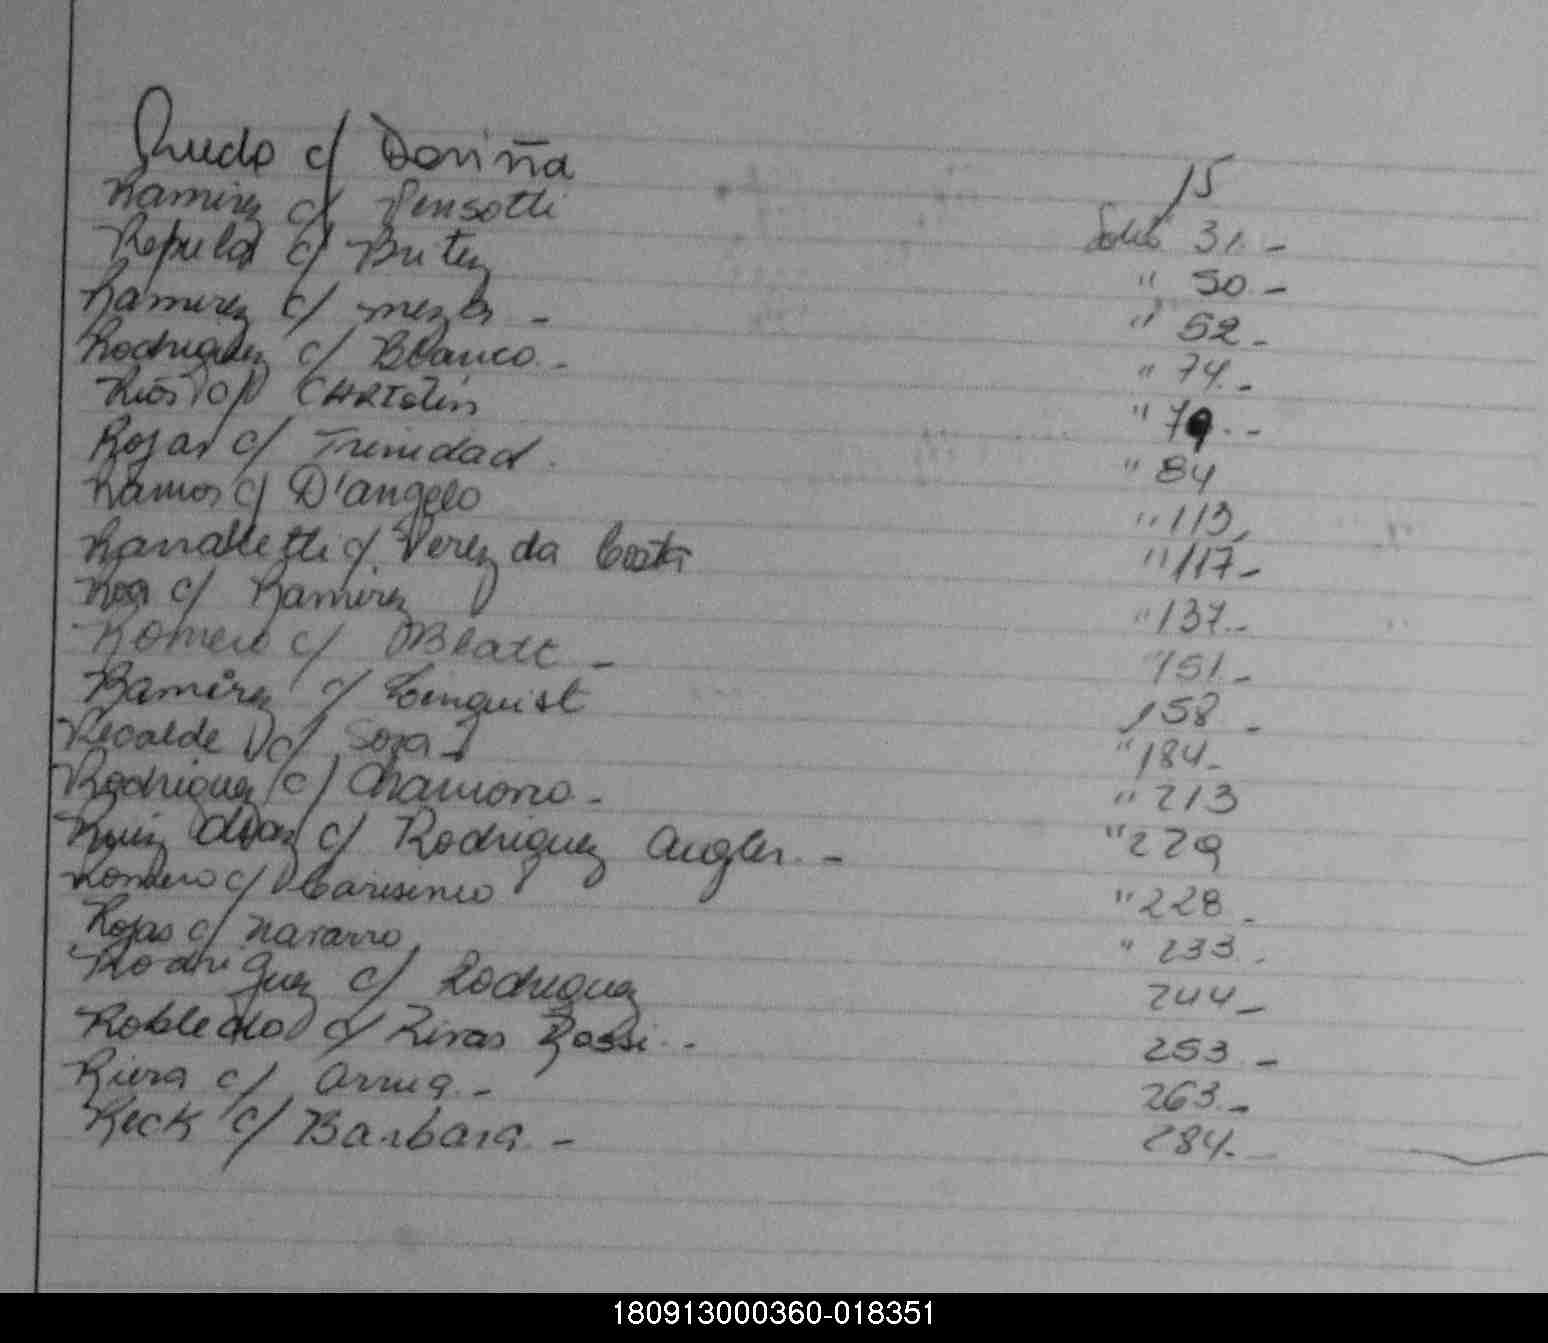 Rudo c/ Doniña 15
Ramirez c/ Pensotti Folio 31.-
c/ Britez " 50.-
Ramirez c/ meza - " 52.-
Rodriguez c/ Blanco.- " 74.-
Rios c/ " 79.-
Rojas c/ Trinidad. " 84
Ramos c/ D'angelo " 113,
c/ Perez da Costa " 117-
Roa c/ Ramirez " 137.-
Romero c/ Blatt - " 151.-
Ramirez c/ 158.-
Recalde c/ Soza " 184-
Rodriguez c/ Chamorro - " 213
Ruiz Diaz c/ Rodriguez Angler. - " 229
Romero c/ " 228.
Rojas c/ navarro, " 233.
Rodriguez c/ Rodriguez 244-
Robledo c/ Rivas Rossi.. 253.-
Riera c/ Arrua.- 263.-
Reck c/ Barbara - 284.-
180913000360-018351